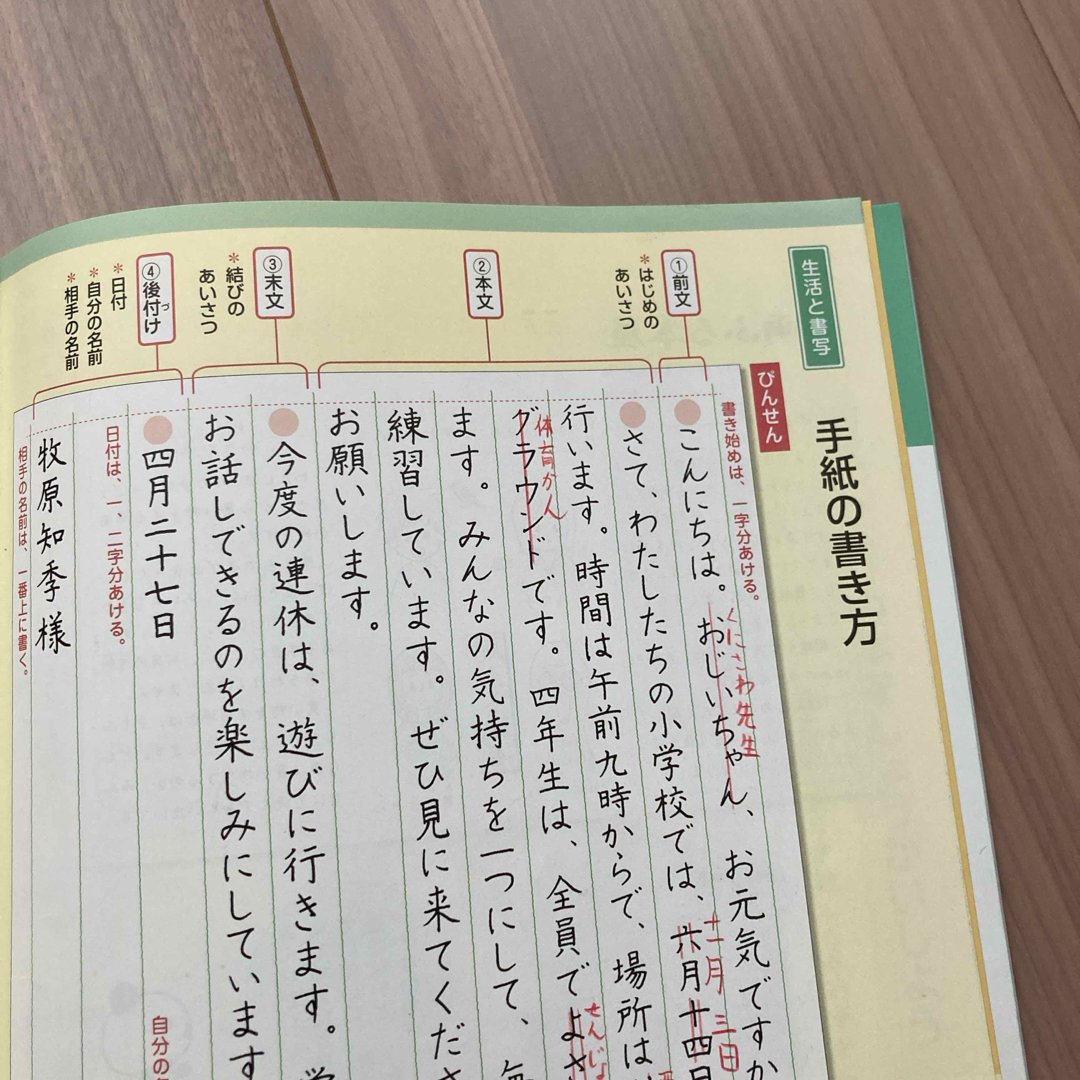 生活と書写
手紙の書き方
びんせん
①前文
*はじめの
あいさつ
②本文
③末文
*結びの
あいさつ
④後付け
づ
*日付
*自分の名前
*相手の名前
書き始めは、一字分あける。
くにさわ先生
こんにちは。おじいちゃん、お元気ですか
十一月三日
さて、わたしたちの小学校では、六月十四日
行います。時間は午前九時からで、場所は
体育かん
グラウンドです。四年生は、全員でよさ
せんじょ
ます。みんなの気持ちを一つにして、毎
練習しています。ぜひ見に来てくださ
お願いします。
今度の連休は、遊びに行きます。学
お話しできるのを楽しみにしています
四月二十七日
日付は、一、二字分あける。
自分の
牧原知季様
相手の名前は、一番上に書く。